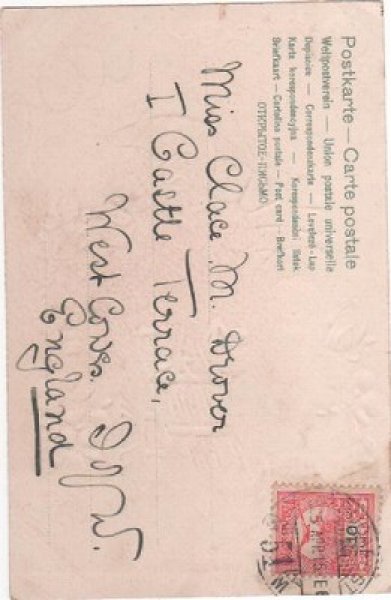 Postkarte — Carte postale
Weltpostverein — Union postale universelle
Dopisnice — Correspondenzkarte — Levelező-Lap
Karta korespondencyjna — Korespondenční lístek
Briefkaart — Cartolina postale — Post card — Brefkort
ОТКРЫТОЕ-ПИСЬМО
Miss Clace. M. Drover
1 Castle Terrace,
West Cowes. I.O.W.
England